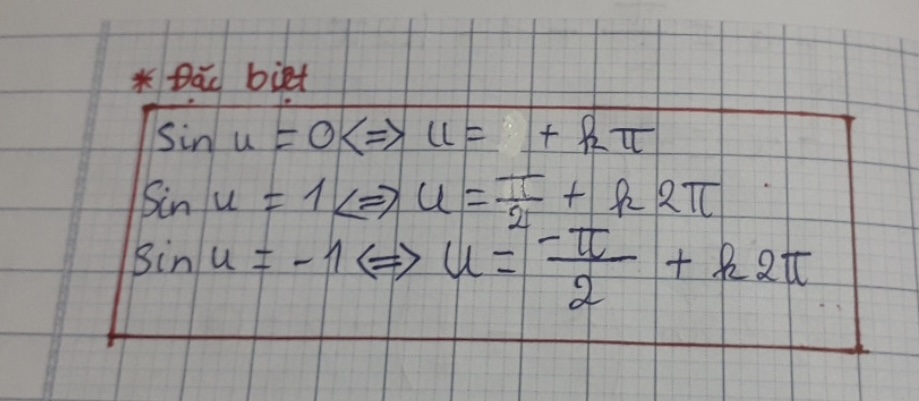 * Đặc biệt
Sin u = 0 <=> u = + kπ
Sin u = 1 <=> u = π/2 + k2π
Sin u = -1 <=> u = -π/2 + k2π